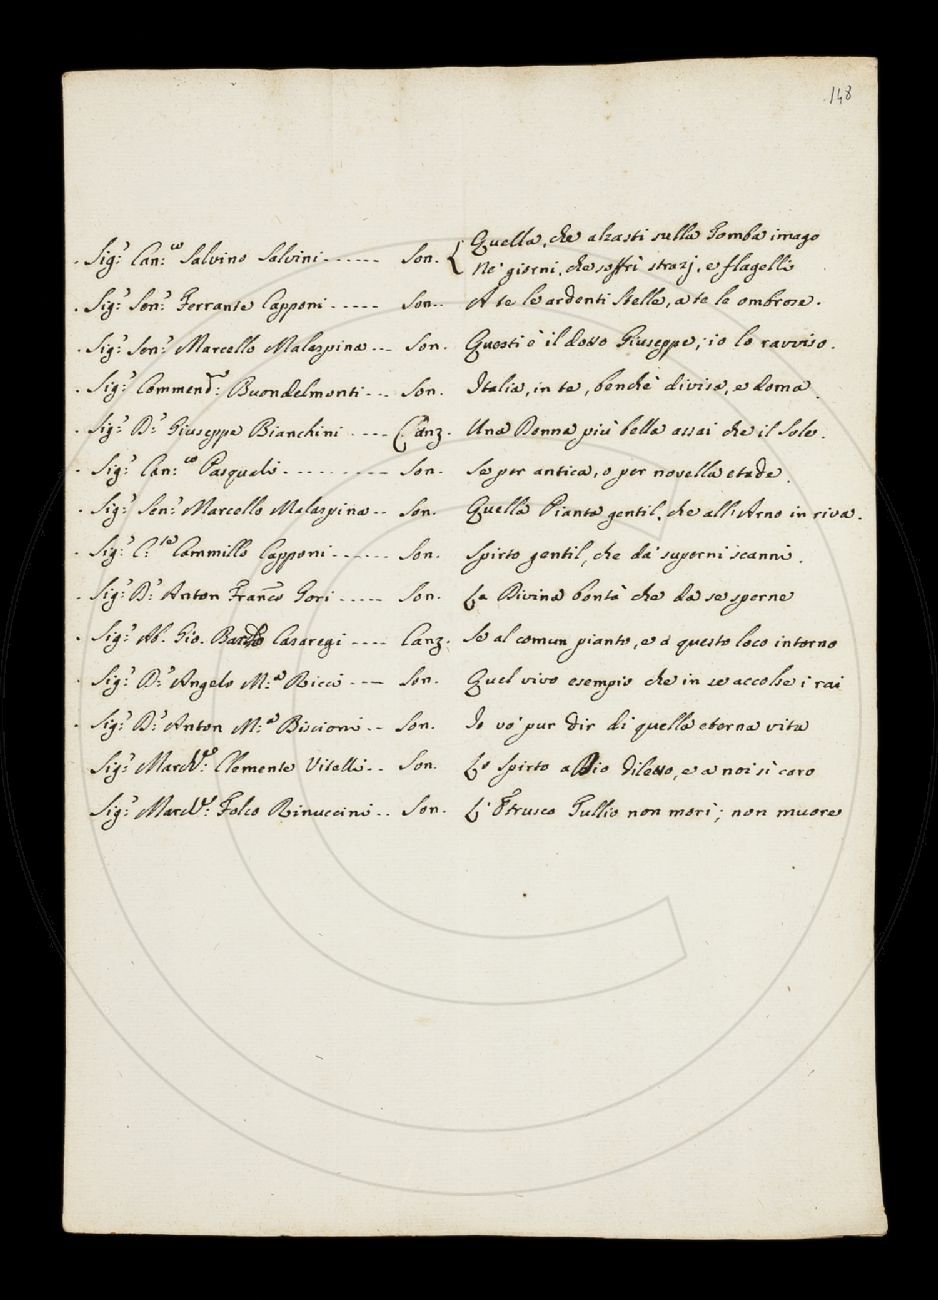 148
. Sig.r Can.co Salvino Salvini ------ Son. { Quella, che alzasti sulla Tomba imago
Ne' giorni, che soffrì strazj, e flagelli
. Sig.r Sen.r Ferrante Capponi ----- Son. A te le ardenti stelle, a te le ombrose.
. Sig.r Sen.r Marcello Malaspina -- Son. Questi è il dotto Giuseppe; io lo ravviso.
. Sig.r Commend.r Buondelmonti --- Son. Italia, in te, benchè divisa, e doma.
. Sig.r D.r Giuseppe Bianchini ---- Canz. Una Donna più bella assai che il Sole.
. Sig.r Can.co Pasquali --------- Son. Se per antica, o per novella etade.
. Sig.r Sen.r Marcello Malaspina -- Son. Quella Pianta gentil, che all'Arno in riva.
. Sig.r C.te Cammillo Capponi ------ Son. Spirto gentil, che da' superni scanni.
. Sig.r D.r Anton Franco Gori ----- Son. La Divina bontà che da se sperne
. Sig.r Ab. Gio. Casaregi ---- Canz. Se al comun pianto, e a questo loco intorno
. Sig.r D.r Angelo M.a Ricci --- Son. Quel vivo esempio che in se accolse i rai
. Sig.r D.r Anton M.a Biscioni -- Son. Io vo' pur dir di quella eterna vita
Sig.r March.e Clemente Vitelli .. Son. Lo Spirto a Dio diletto, e a noi sì caro
Sig.r March.e Folco Rinuccini .. Son. L'Etrusco Tullio non morì; non muore